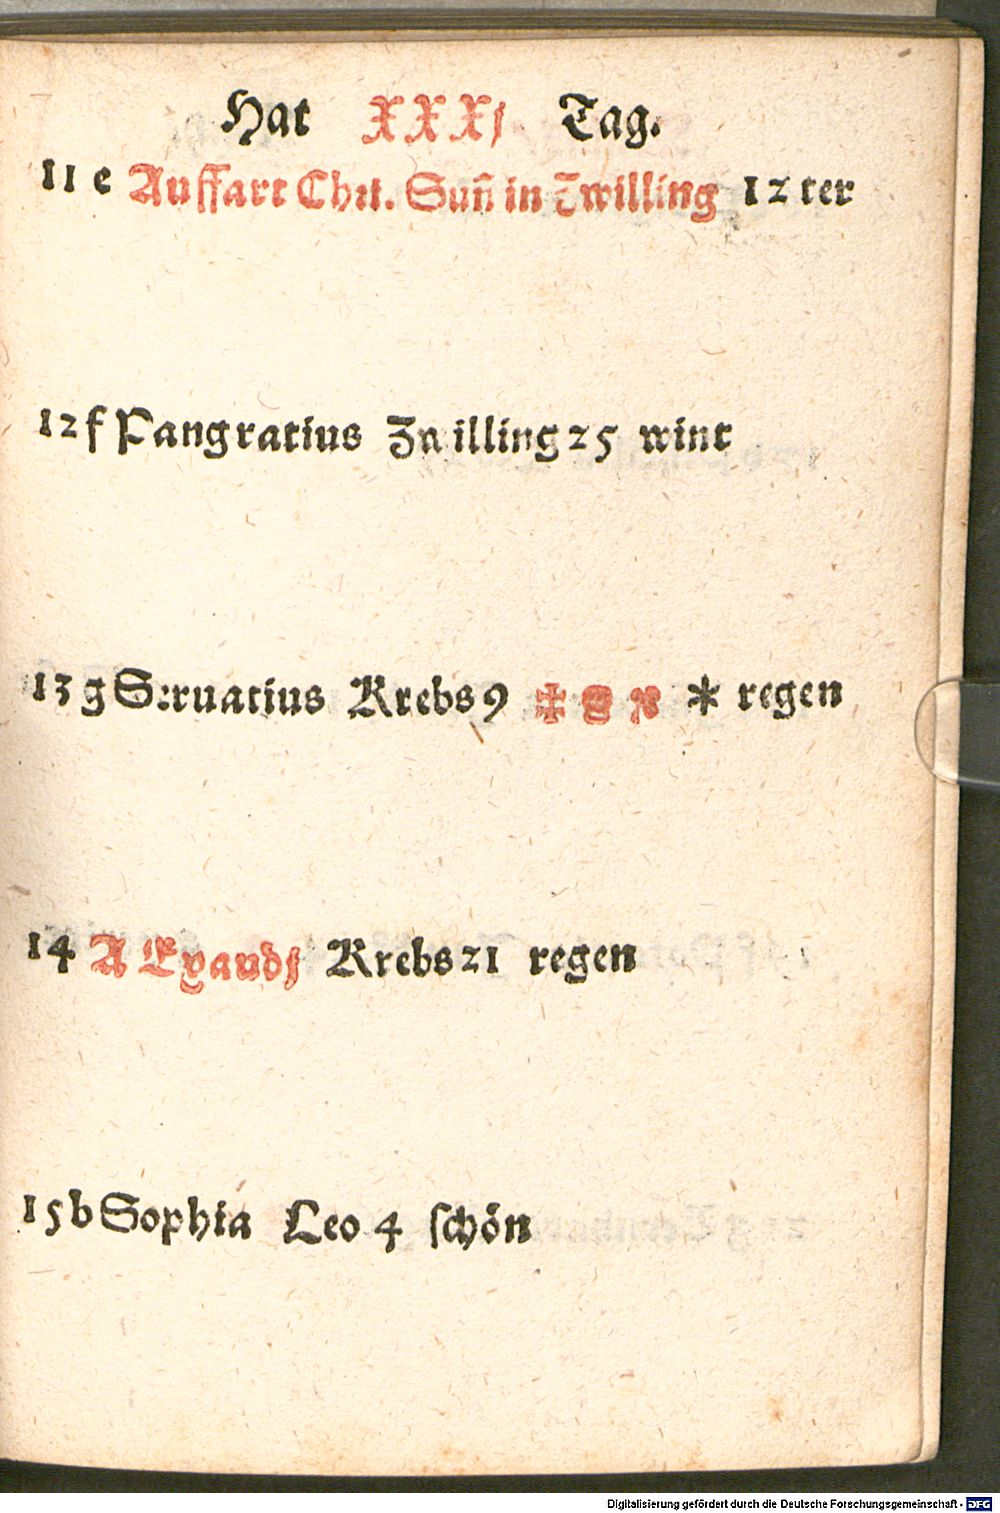 Hat XXXj Tag.
11 e Auffart Chri. Suñ in Zwilling 12 ter
12 f Pangratius Zwilling 25 wint
13 g Seruatius Krebs 9 ✠ * regen
14 A Exaudj Krebs 21 regen
15 b Sophia Leo 4 schön
Digitalisierung gefördert durch die Deutsche Forschungsgemeinschaft - DFG